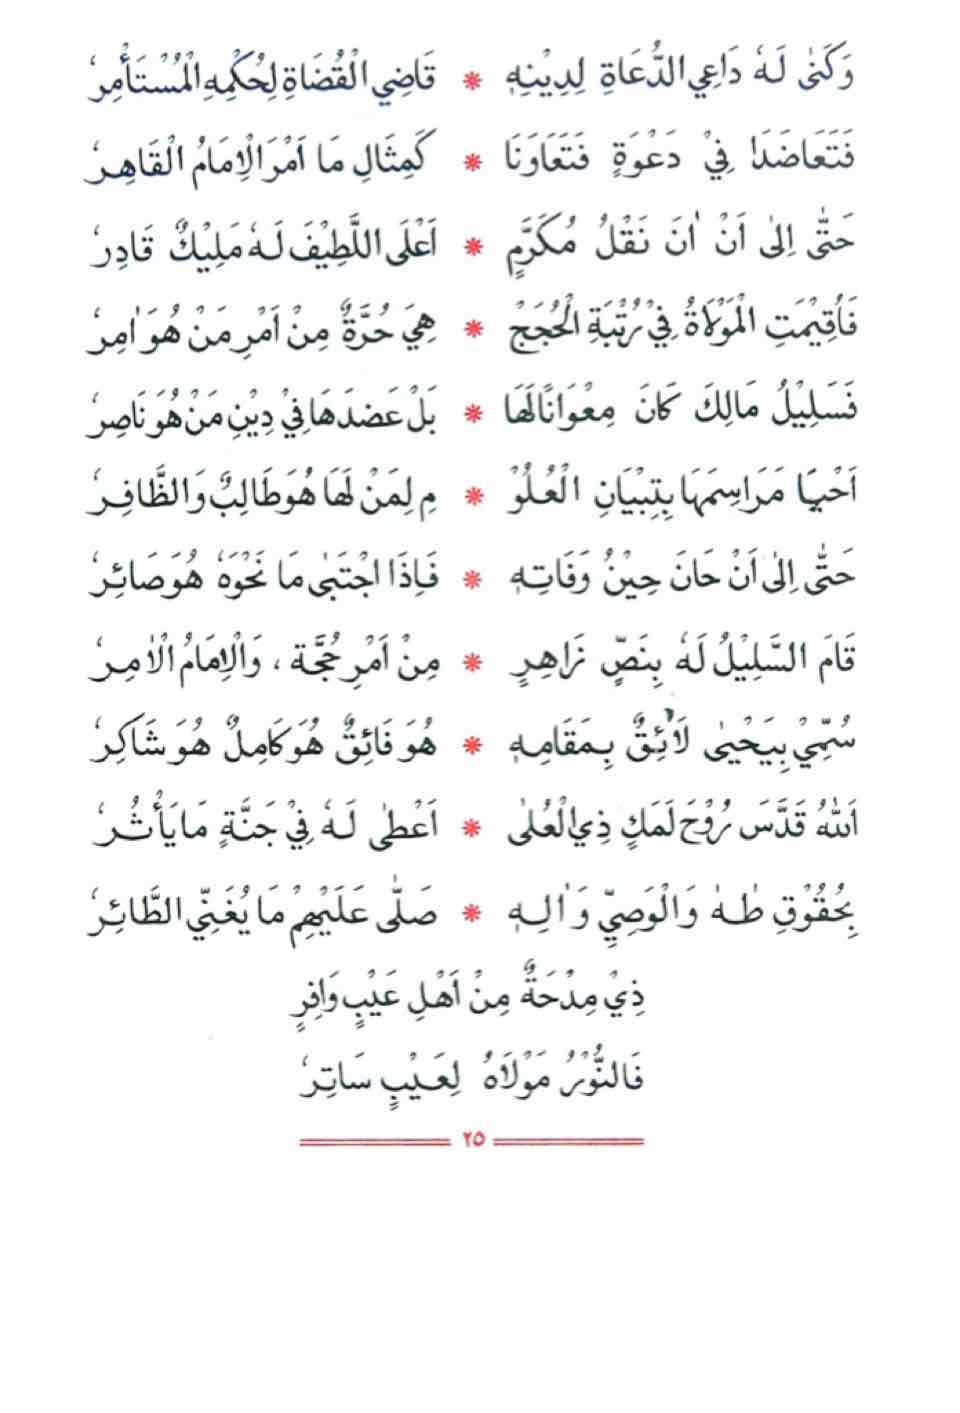 وَكَنٰى لَهٗ دَاعِي الدُّعَاةِ لِدِيْنِهٖ * قَاضِي الْقُضَاةِ لِحُكْمِهِ الْمُسْتَأْمِرٗ
فَتَعَاضَدَا فِيْ دَعْوَةٍ فَتَعَاوَنَا * كَمِثَالِ مَا اَمْرَ الْاِمَامُ الْقَاهِرٗ
حَتّٰى اِلٰى اَنْ اٰنَ نَقْلُ مُكَرَّمٍ * اَعْلَى اللَّطِيْفَ لَهٗ مَلِيْكٌ قَادِرٗ
فَاُقِيْمَتِ الْمَوْلَاةُ فِيْ رُتْبَةِ الْحُجَجْ * هِيَ حُرَّةٌ مِنْ اَمْرِ مَنْ هُوَ اٰمِرٗ
فَسَلِيْلُ مَالِكَ كَانَ مِعْوَانًا لَهَا * بَلْ عَضدَهَا فِيْ دِيْنِ مَنْ هُوَ نَاصِرٗ
اَحْيَا مَرَاسِمَهَا بِتِبْيَانِ الْعُلُوْ * مِ لِمَنْ لَهَا هُوَ طَالِبٌ وَالظَّافِرٗ
حَتّٰى اِلٰى اَنْ حَانَ حِيْنُ وَفَاتِهٖ * فَاِذَا اجْتَبٰى مَا نَحْوَهٗ هُوَ صَائِرٗ
قَامَ السَّلِيْلُ لَهٗ بِنَصٍّ زَاهِرٍ * مِنْ اَمْرِ حُجَّة ، وَالْاِمَامُ الْاٰمِرٗ
سُمِّيْ بِيَحْيٰى لَائِقٌ بِمَقَامِهٖ * هُوَ فَائِقٌ هُوَ كَامِلٌ هُوَ شَاكِرٗ
اَللهُ قَدَّسَ رُوْحَ لَمَكٍ ذِي الْعُلٰى * اَعْطٰى لَهٗ فِيْ جَنَّةٍ مَا يَأْثُرٗ
بِحُقُوْقِ طٰهٰ وَالْوَصِيِّ وَاٰلِهٖ * صَلّٰى عَلَيْهِمْ مَا يُغَنِّي الطَّائِرٗ
ذِيْ مِدْحَةٌ مِنْ اَهْلِ عَيْبٍ وَافِرٍ
فَالنُّوْرُ مَوْلَاهُ لِعَيْبٍ سَاتِرٗ
٢٥